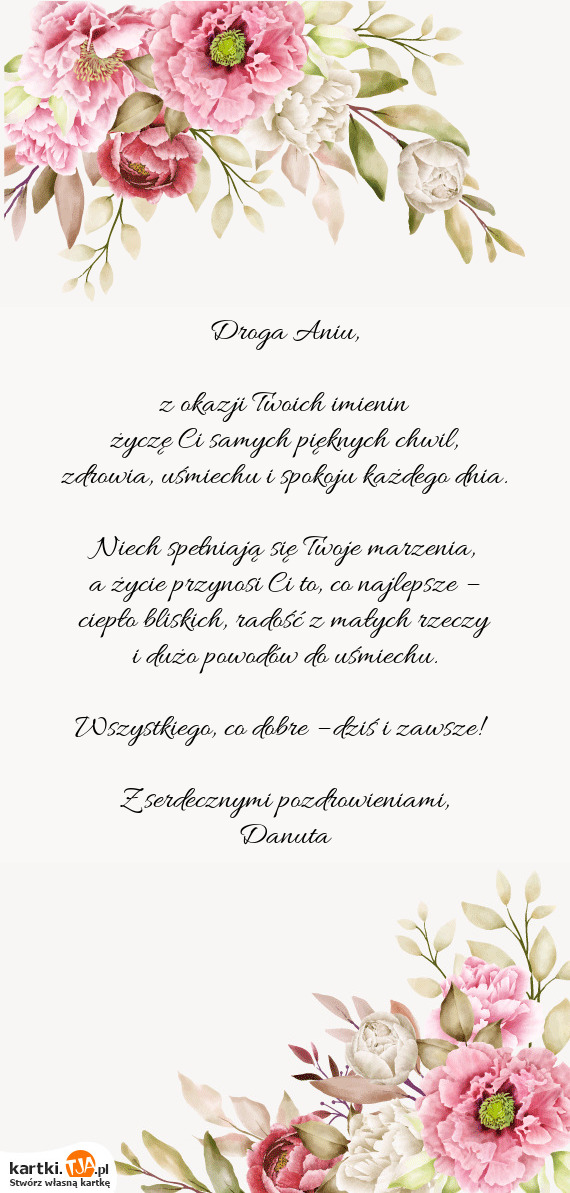 Droga Aniu,
z okazji Twoich imienin
życzę Ci samych pięknych chwil,
zdrowia, uśmiechu i spokoju każdego dnia.
Niech spełniają się Twoje marzenia,
a życie przynosi Ci to, co najlepsze –
ciepło bliskich, radość z małych rzeczy
i dużo powodów do uśmiechu.
Wszystkiego, co dobre – dziś i zawsze!
Z serdecznymi pozdrowieniami,
Danuta
kartki.TJA.pl
Stwórz własną kartkę